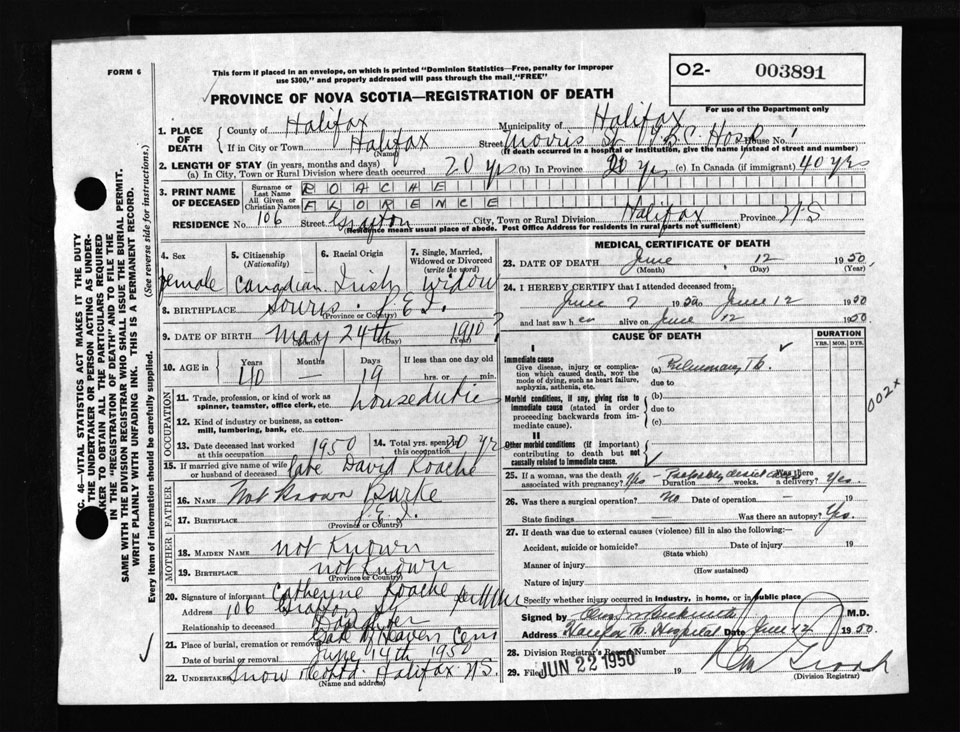 FORM 6
This form if placed in an envelope, on which is printed "Dominion Statistics—Free, penalty for improper
use $300," and properly addressed will pass through the mail "FREE"
PROVINCE OF NOVA SCOTIA—REGISTRATION OF DEATH
O2- 003891
For use of the Department only
1. PLACE OF DEATH
County of Halifax Municipality of Halifax
If in City or Town Halifax (Name) Street Morris St. Hosp House No.
(If death occurred in a hospital or institution, give the name instead of street and number)
2. LENGTH OF STAY (in years, months and days)
(a) In City, Town or Rural Division where death occurred 20 yrs (b) In Province 20 yrs (c) In Canada (if immigrant) 40 yrs
3. PRINT NAME OF DECEASED
Surname or Last Name ROACHE
All Given or Christian Names FLORENCE
RESIDENCE No. 106 Street Grafton City, Town or Rural Division Halifax Province N.S
(Residence means usual place of abode. Post Office Address for residents in rural parts not sufficient)
4. Sex
female
5. Citizenship (Nationality)
Canadian
6. Racial Origin
Irish
7. Single, Married, Widowed or Divorced (write the word)
Widow
8. BIRTHPLACE Souris P.E.I.
(Province or Country)
9. DATE OF BIRTH May 24th 1910?
(Month) (Day) (Year)
10. AGE in Years Months Days If less than one day old
40 — 19 hrs. or min.
OCCUPATION
11. Trade, profession, or kind of work as spinner, teamster, office clerk, etc. houseduties
12. Kind of industry or business, as cotton-mill, lumbering, bank, etc.
13. Date deceased last worked at this occupation 1950
14. Total yrs. spent in this occupation 20 yrs
15. If married give name of wife or husband of deceased late David Roache
FATHER
16. NAME Not Known Burke
17. BIRTHPLACE P.E.I.
(Province or Country)
MOTHER
18. MAIDEN NAME not Known
19. BIRTHPLACE not Known
(Province or Country)
20. Signature of informant Catherine Roache
Address 106 Grafton St
Relationship to deceased Daughter
21. Place of burial, cremation or removal Gate of Heaven Cem
Date of burial or removal June 14th 1950
22. Undertaker Snow & Co Ltd. Halifax N.S.
(Name and address)
MEDICAL CERTIFICATE OF DEATH
23. DATE OF DEATH June 12 1950
(Month) (Day) (Year)
24. I HEREBY CERTIFY that I attended deceased from:
June 7 1950 to June 12 1950
and last saw her alive on June 12 1950
CAUSE OF DEATH
DURATION
YRS. MOS. DYS.
I
Immediate cause
Give disease, injury or complication which caused death, NOT the mode of dying, such as heart failure, asphyxia, asthenia, etc.
(a) Pulmonary Tb.
due to
Morbid conditions, if any, giving rise to immediate cause (stated in order proceeding backwards from immediate cause).
(b)
due to
(c)
II
Other morbid conditions (if important) contributing to death but not causally related to immediate cause.
002x
25. If a woman, was the death associated with pregnancy? Yes Duration weeks. Was there a delivery? Yes.
26. Was there a surgical operation? No Date of operation — 19
State findings Was there an autopsy? Yes.
27. If death was due to external causes (violence) fill in also the following:—
Accident, suicide or homicide? Date of injury 19
(State which)
Manner of injury
(How sustained)
Nature of injury
Specify whether injury occurred in industry, in home, or in public place
Signed by M.D.
Address Halifax Hospital Date June 12 1950.
28. Division Registrar's Record Number
29. Filed JUN 22 1950 19
(Division Registrar)
SEC. 46—VITAL STATISTICS ACT MAKES IT THE DUTY
OF THE UNDERTAKER OR PERSON ACTING AS UNDER-
TAKER TO OBTAIN ALL THE PARTICULARS REQUIRED
IN THE "REGISTRATION OF DEATH" AND TO FILE THE
SAME WITH THE DIVISION REGISTRAR WHO SHALL ISSUE THE BURIAL PERMIT.
WRITE PLAINLY WITH UNFADING INK. THIS IS A PERMANENT RECORD.
Every item of information should be carefully supplied. (See reverse side for instructions.)